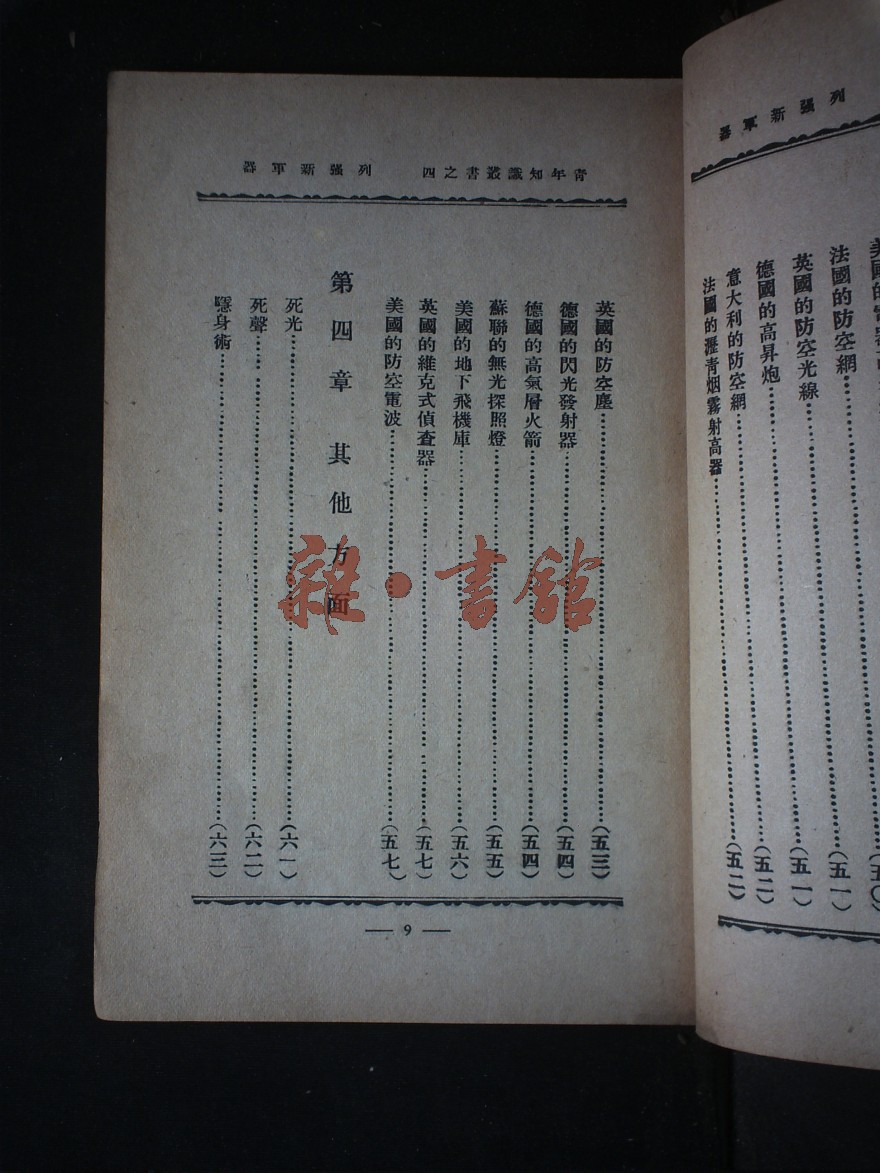 列强新軍器
法國的防空網……(五一)
英國的防空光線……(五一)
德國的高昇炮……(五二)
意大利的防空網……(五二)
法國的瀝青烟霧射高器
青年知識叢書之四　列强新軍器
英國的防空塵……(五三)
德國的閃光發射器……(五四)
德國的高氣層火箭……(五四)
蘇聯的無光探照燈……(五五)
美國的地下飛機庫……(五六)
英國的維克式偵查器……(五七)
美國的防空電波……(五七)
第四章 其他方面
死光……(六一)
死聲……(六二)
隱身術……(六三)
— 9 —
雜·書館